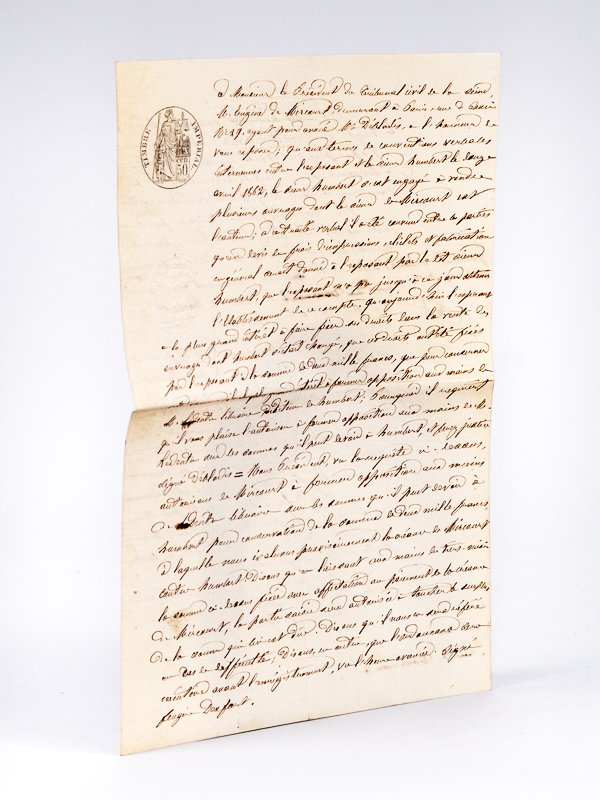 TIMBRE IMPERIAL
50
à Monsieur le Président du Tribunal civil de la Seine,
M. Eugène de Mirecourt, demeurant à Paris, rue
No 49, ayant pour avoué Me Deblodis, a l'honneur de
vous exposer, qu'aux termes de conventions verbales
intervenues entre l'exposant et le sieur humbert le douze
avril 1862, le sieur humbert s'est engagé à vendre
plusieurs ouvrages dont le sieur de Mirecourt est
l'auteur; à ce traité verbal il a été convenu entre les parties
qu'un devis des frais d'impressions, clichés et fabrication
en général serait donné à l'exposant par le dit sieur
humbert, que l'exposant n'a pu jusqu'à ce jour obtenir
l'établissement de ce compte, qu'aujourd'hui l'exposant
a le plus grand intérêt à faire fixer ses droits dans la vente des
ouvrages dont humbert s'était chargé, que ces droits ont été fixés
par l'exposant à la somme de deux mille francs, que pour conserver
intérêt à former opposition aux mains de
M. libraire éditeur de humbert, Pourquoi il requiert
qu'il vous plaise l'autoriser à former opposition aux mains de M.
sur les sommes qu'il peut devoir à humbert, et ferez justice
signé Deblodis = Nous Président, vu la requête ci-dessus,
autorisons de Mirecourt à former opposition aux mains
de libraire sur les sommes qu'il peut devoir à
humbert pour conservation de la somme de deux mille francs
à laquelle nous évaluons provisoirement la créance de Mirecourt
contre humbert; Disons qu'en laissant aux mains du tiers-saisi
la somme ci-dessus fixée avec affectation au paiement de la créance
de Mirecourt, la partie saisie sera autorisée à toucher le surplus
de la somme qui lui est due; Disons qu'il nous en sera référé
en cas de difficulté; Disons, en outre, que l'ordonnance sera
exécutoire avant l'enregistrement, vu l'heure avancée. Signé